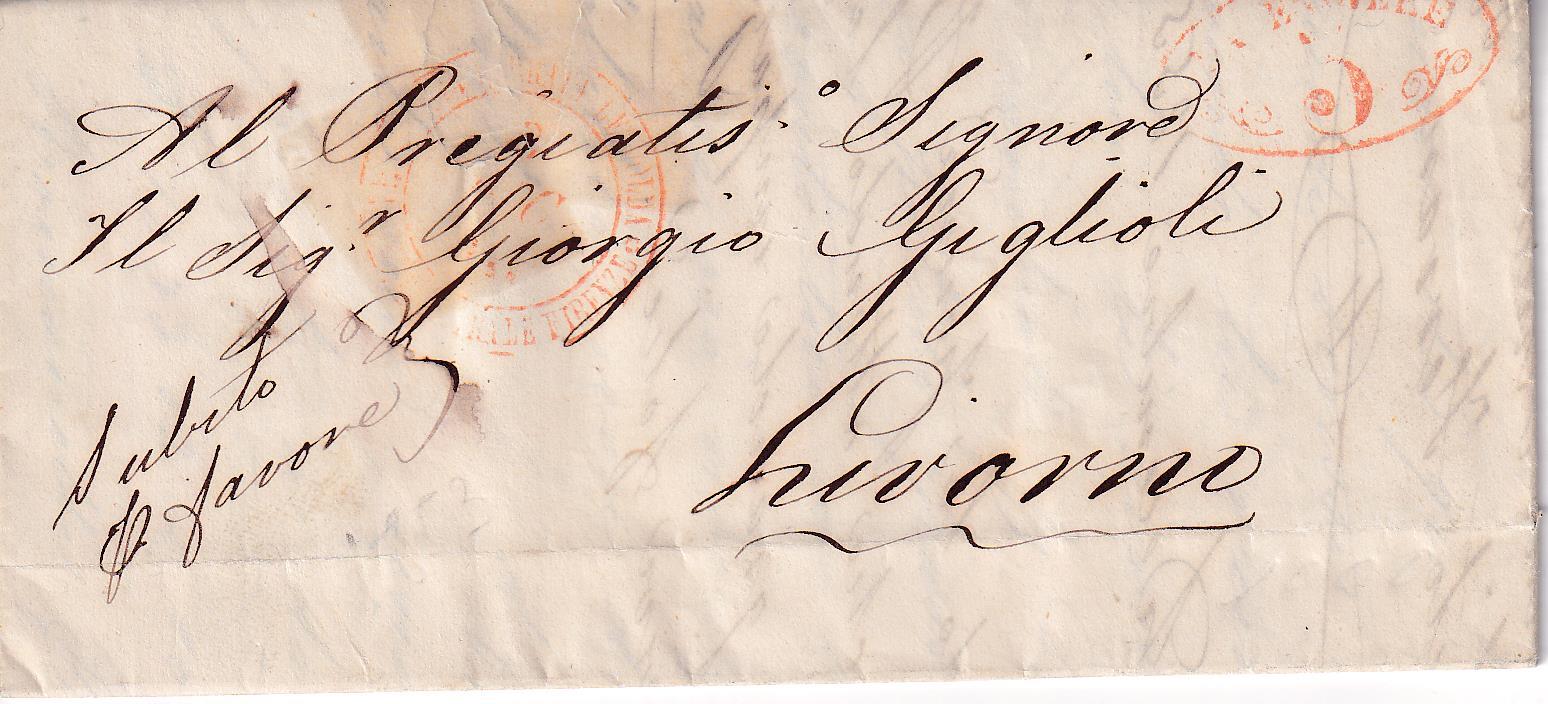 Al Pregiatis.º Signore
Il Sig.r Giorgio Giglioli
Subito
favore
Livorno
FIRENZE
5